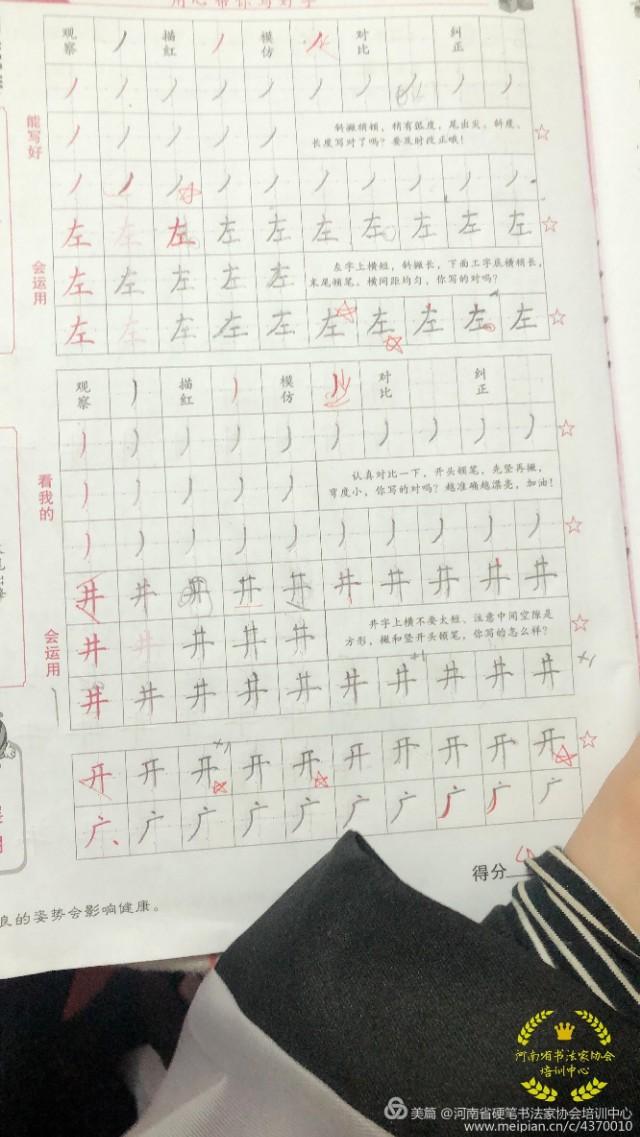 用心带你写好字
观察 丿 描红 丿 模仿 丿 对比 纠正
丿 丿 丿 丿 丿 丿 丿 丿 丿 丿
能写好
丿 丿 丿 丿 丿
斜撇稍顿,稍有弧度,尾出尖。斜度、
长度写对了吗?要及时改正哦!
丿 丿 丿 丿 丿 丿 丿 丿 丿 丿
左 左 左 左 左 左 左 左 左 左
会运用
左 左 左 左 左
左字上横短,斜撇长,下面工字底横稍长,
末尾顿笔。横间距均匀,你写的对吗?
左 左 左 左 左 左 左 左 左 左
观察 丿 描红 丿 模仿 对比 纠正
丿 丿 丿 丿 丿 丿 丿 丿 丿 丿
看我的
丿 丿 丿 丿 丿
认真对比一下,开头顿笔,先竖再撇,
弯度小,你写的对吗?越准确越漂亮,加油!
丿 丿 丿 丿 丿 丿 丿 丿 丿 丿
井 井 井 井 井 井 井 井 井 井
会运用
井 井 井 井 井
井字上横不要太短、注意中间空隙是
方形,撇和竖开头顿笔,你写的怎么样?
+1
井 井 井 井 井 井 井 井 井 井
+1
+1
开 开 开 开 开 开 开 开 开 开
广 广 广 广 广 广 广 广 广 广
得分
良的姿势会影响健康。
河南省书法家协会
培训中心
美篇 @河南省硬笔书法家协会培训中心
www.meipian.cn/c/4370010